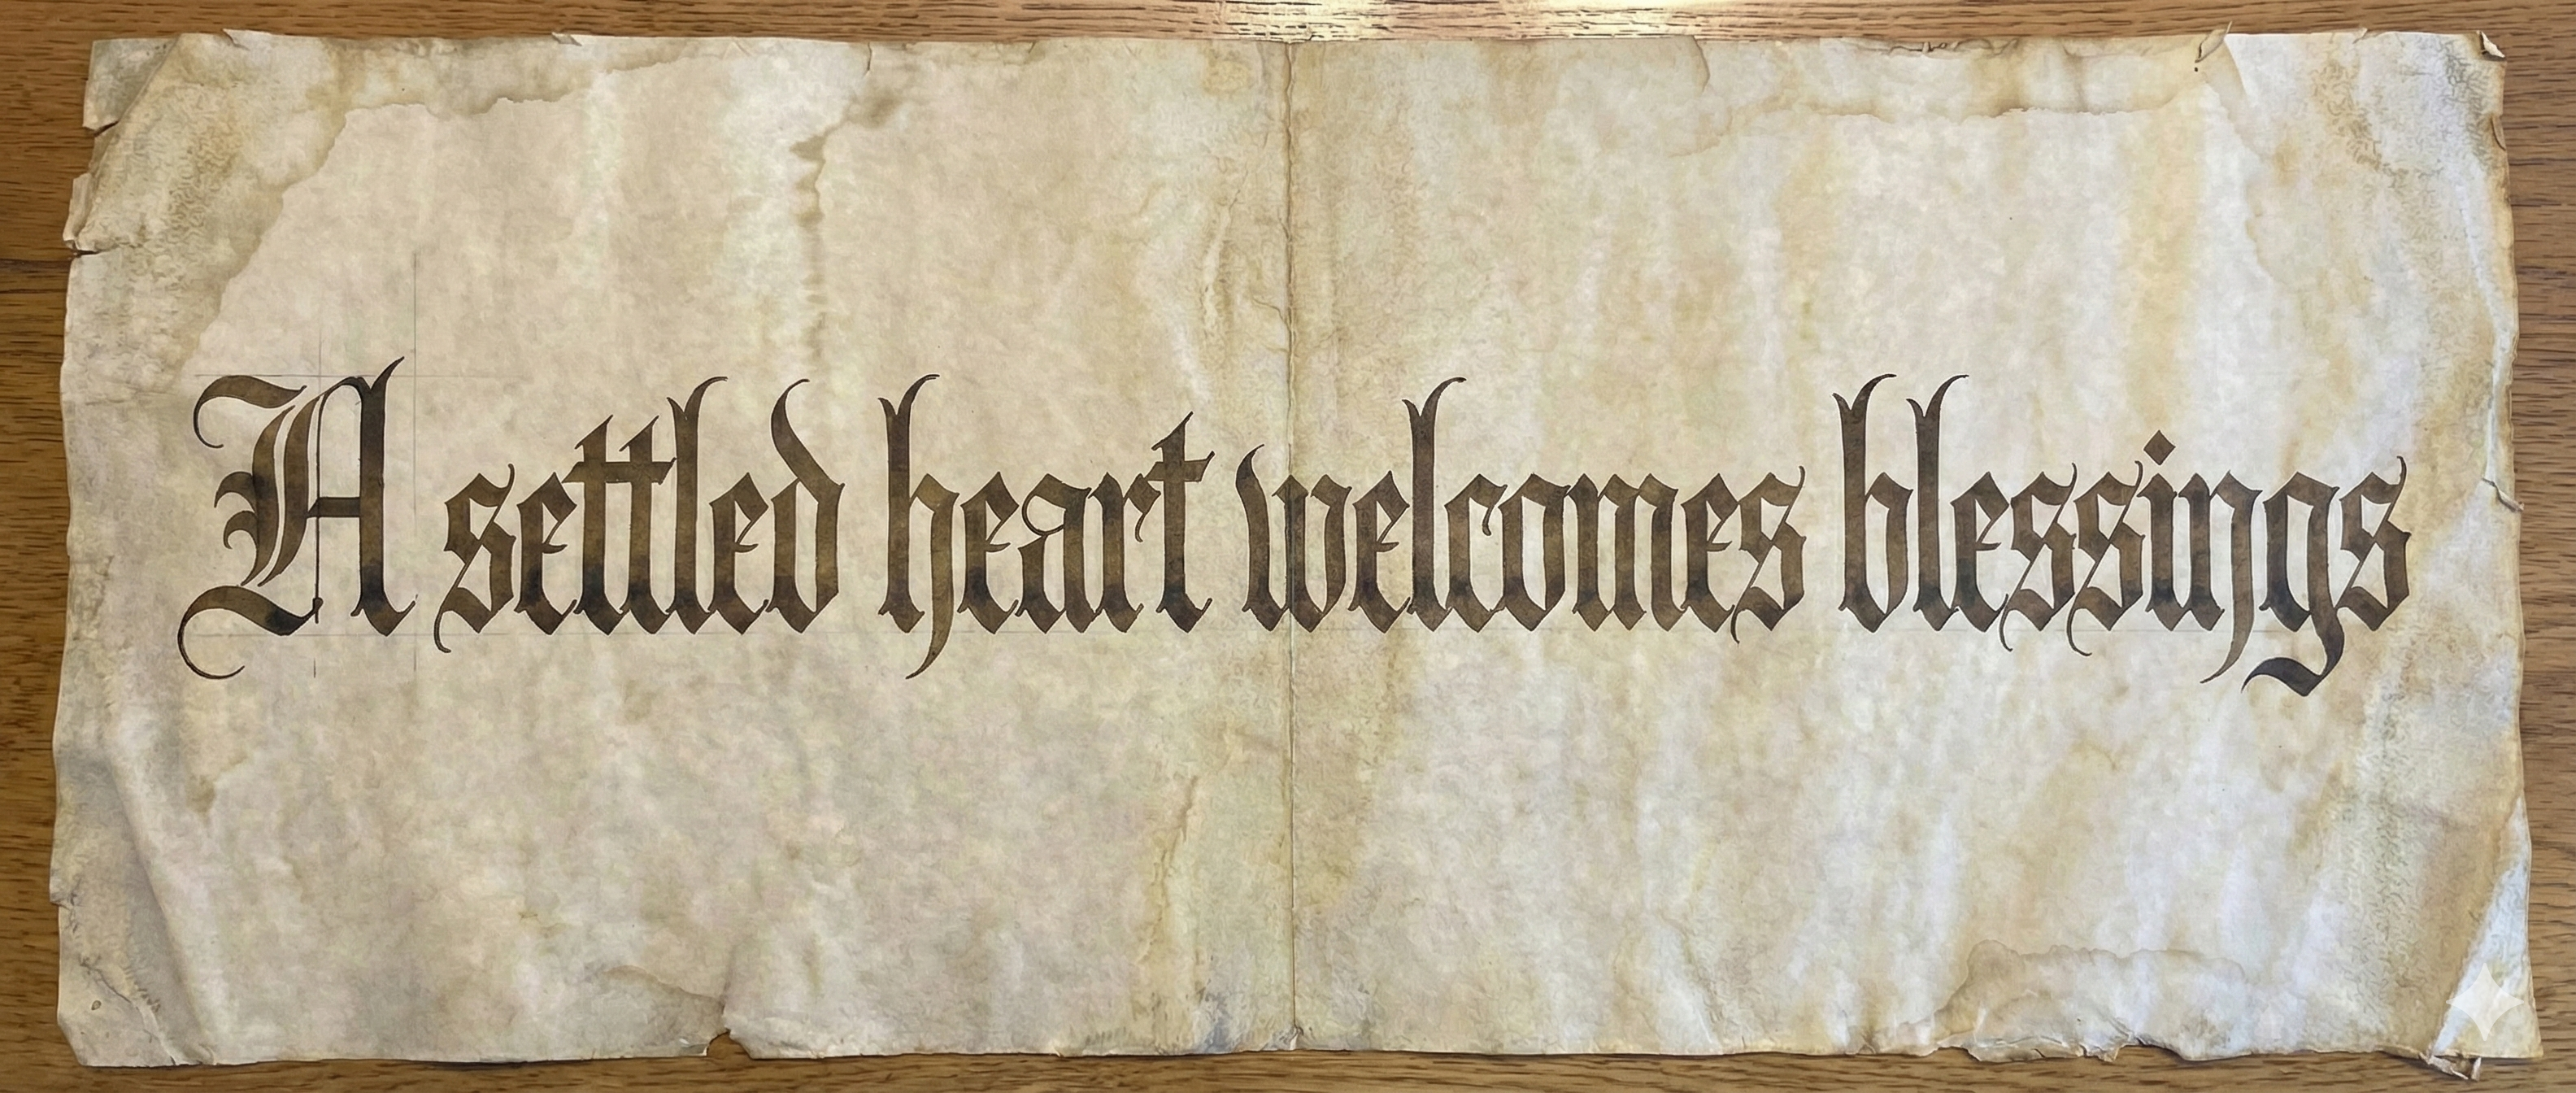 A settled heart welcomes blessings